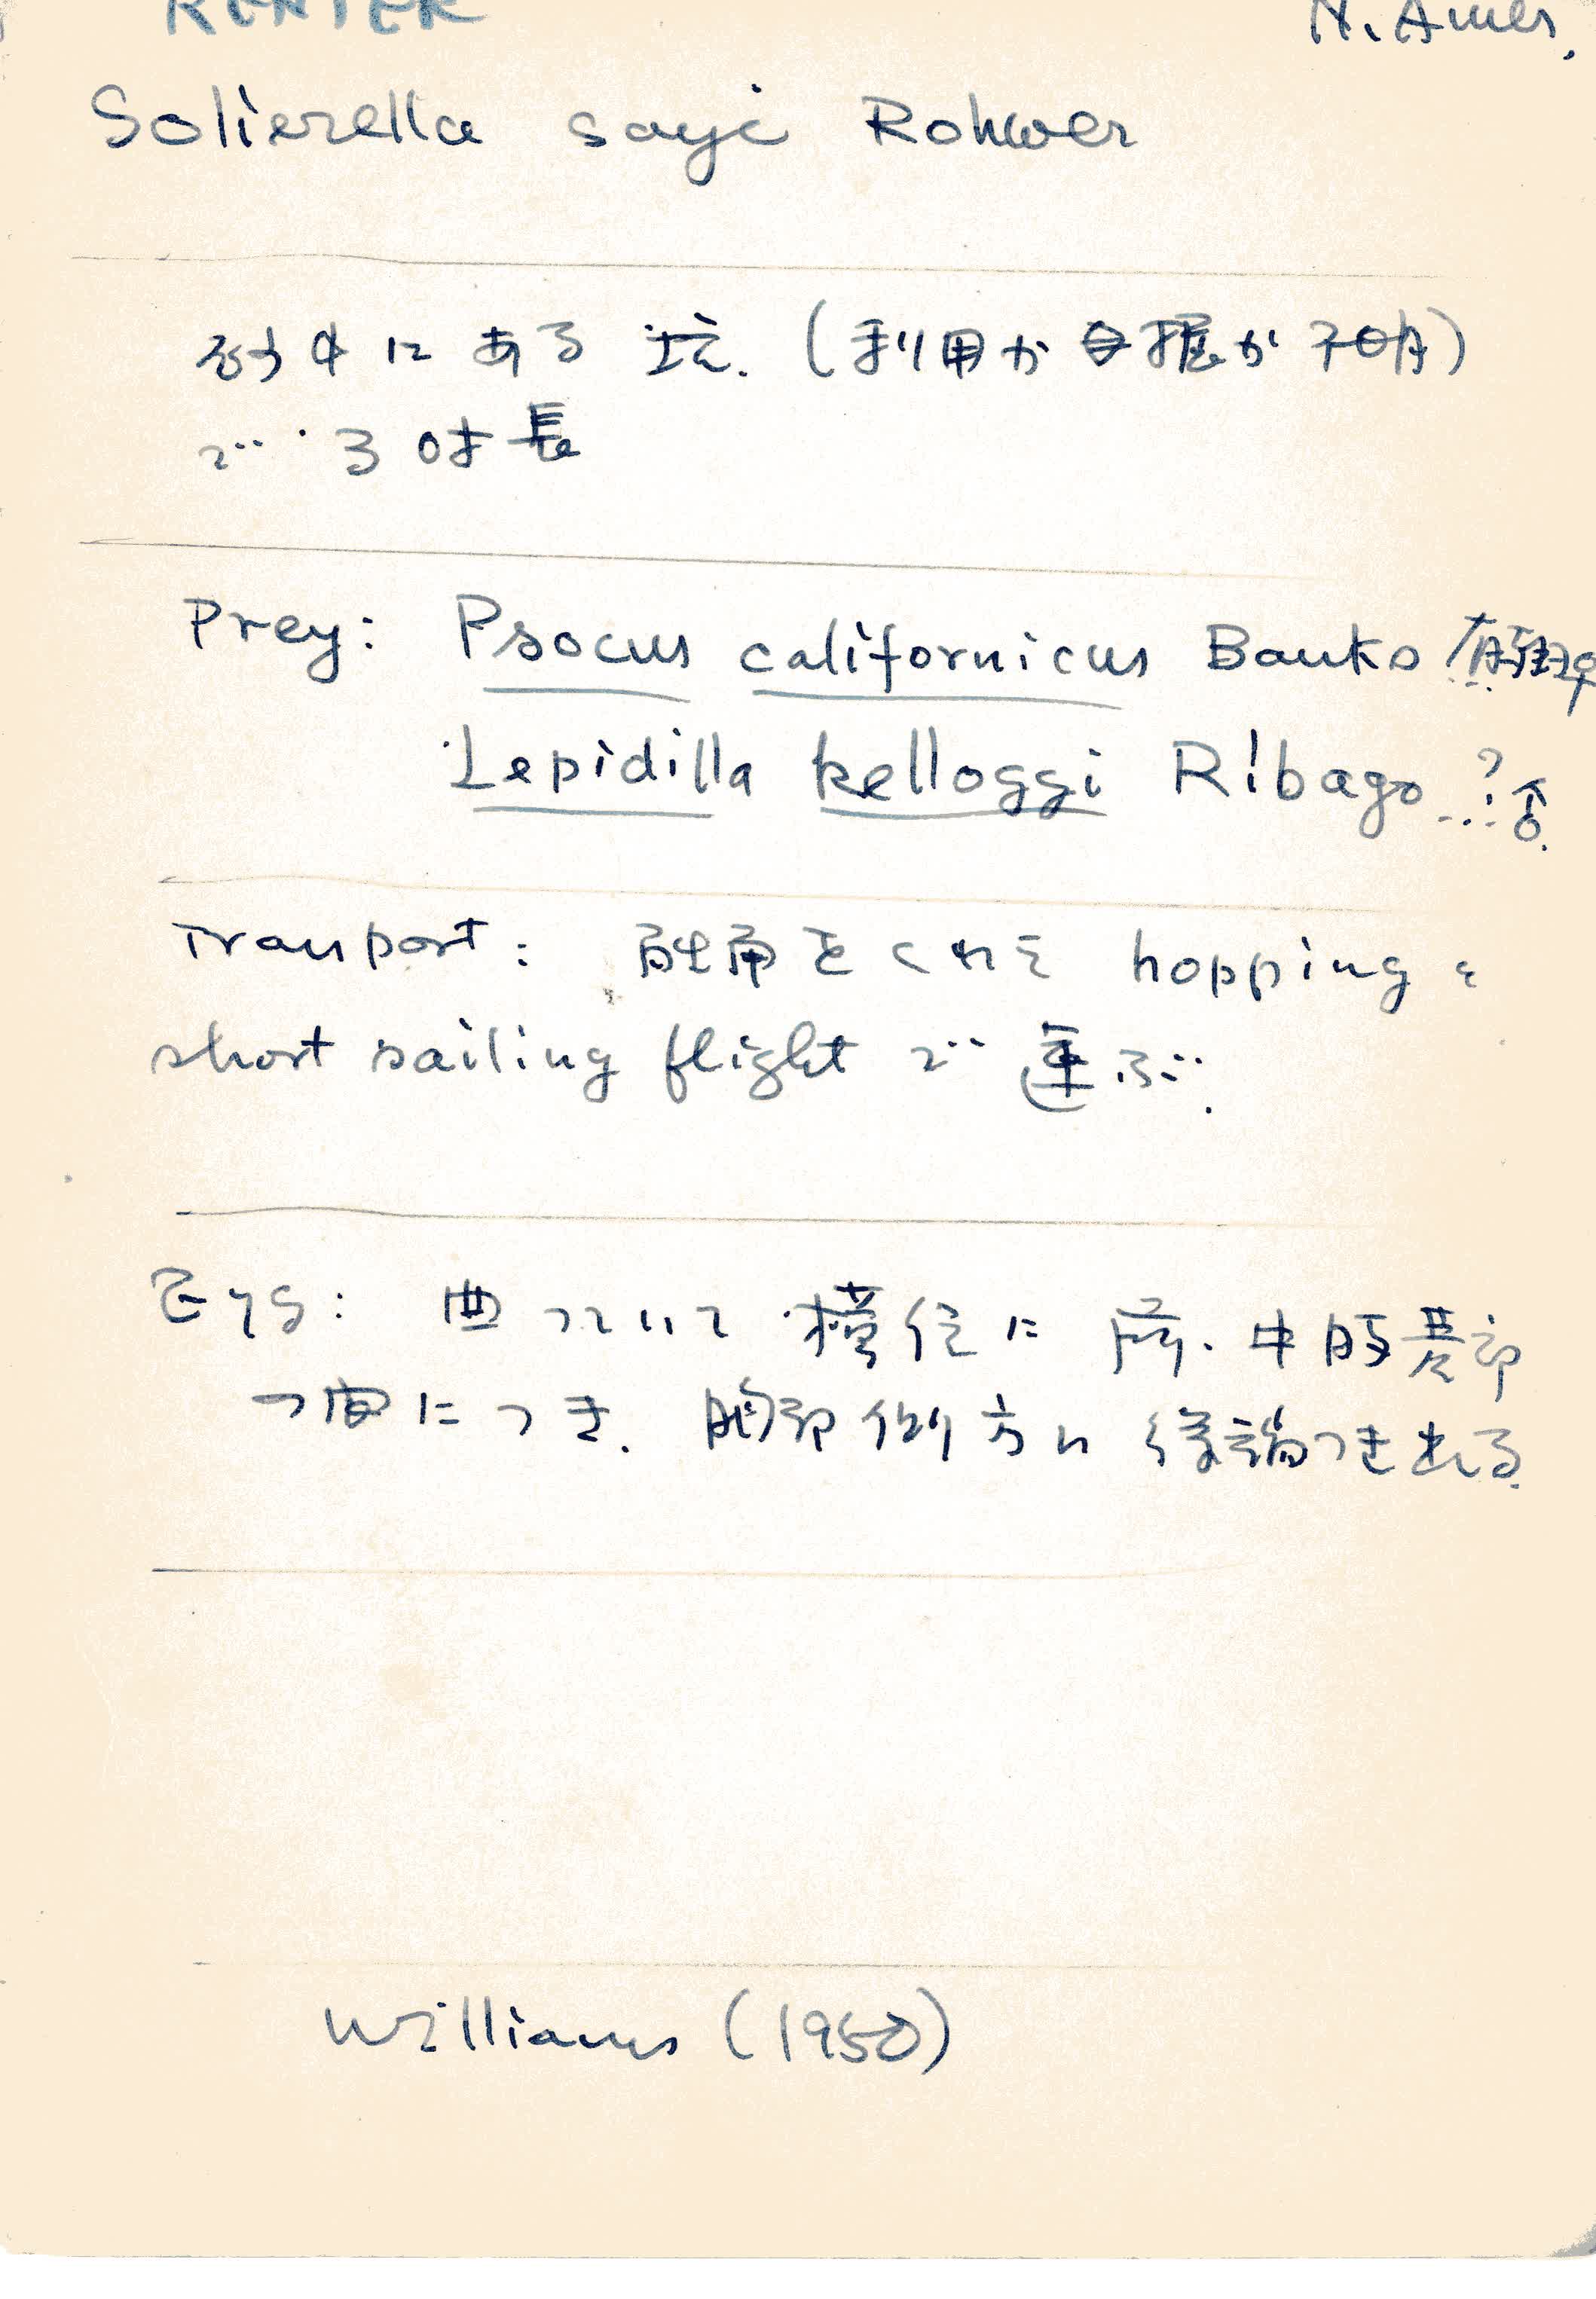 RENTER N. Amer.
Solierella sayi Rohwer
砂中にある坑. (利用か自掘か不明)
で 3吋長
Prey: Psocus californicus Banks 有翅♀
Lepidilla kelloggi Ribago ...?♂
Tranport: 触角をくわえ hopping &
short sailing flight で運ぶ.
Egg: 曲っていて横位に前・中脚基部
の間につき. 胸部側方に後端つき出る.
Williams (1950)